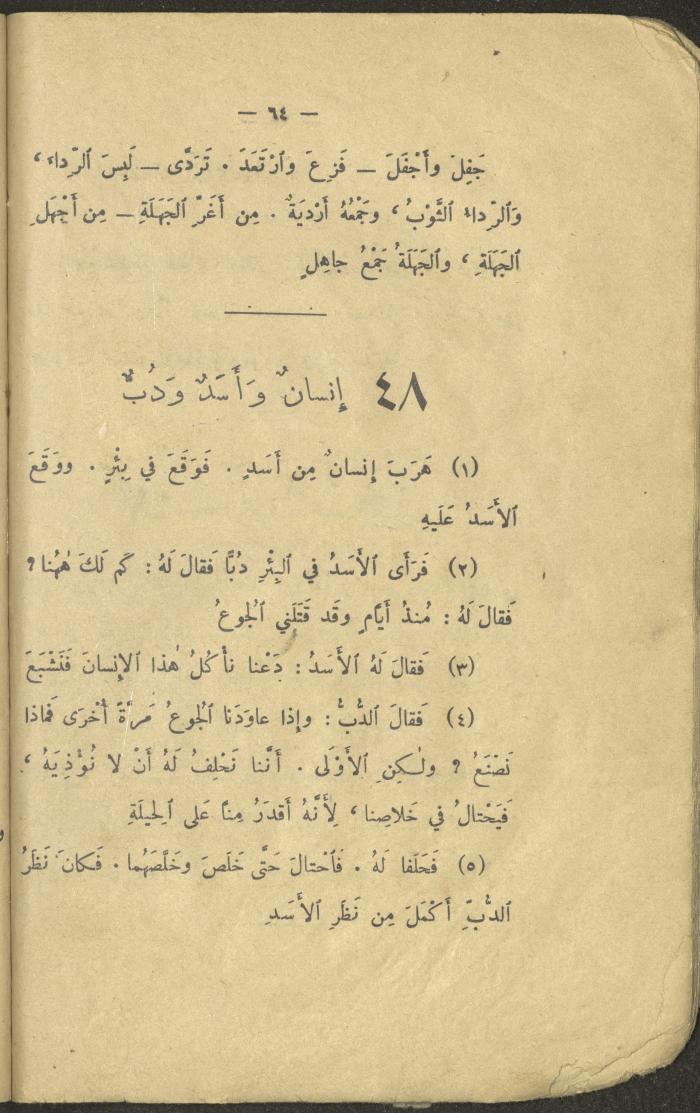 — ٦٤ —
جَفِلَ وأَجْفَلَ — فَزِعَ وٱرْتَعَدَ . تَرَدَّى — لَبِسَ ٱلرِّداءَ ،
وَٱلرِّداءُ ٱلثَّوْبُ ، وجَمْعُهُ أَرْدِيَةٌ . مِن أَغَرِّ ٱلجَهَلَةِ — مِن أَجْهَلِ
ٱلجَهَلَةِ ، وٱلجَهَلَةُ جَمْعُ جاهِلٍ
٤٨ إِنسانٌ وَأَسَدٌ وَدُبٌّ
(١) هَرَبَ إِنسانٌ مِن أَسَدٍ . فَوَقَعَ في بِئْرٍ . ووَقَعَ
ٱلأَسَدُ عَلَيهِ
(٢) فَرَأَى ٱلأَسَدُ في ٱلبِئْرِ دُبًّا فَقالَ لَهُ : كَم لَكَ هٰهُنا ؟
فَقالَ لَهُ : مُنذُ أَيَّامٍ وقَد قَتَلَني ٱلجُوعُ
(٣) فَقالَ لَهُ ٱلأَسَدُ : دَعْنا نأكُلُ هٰذا ٱلإِنسانَ فَنَشْبَعَ
(٤) فَقالَ ٱلدُّبُّ : وإِذا عاوَدَنا ٱلجُوعُ مَرَّةً أُخْرَى فَماذا
نَصْنَعُ ؟ ولٰكِنِ ٱلأَوْلَى . أَنَّنا نَحْلِفُ لَهُ أَنْ لا نُؤْذِيَهُ ،
فَيَحْتالُ في خَلاصِنا ، لِأَنَّهُ أَقدَرُ مِنّا عَلى ٱلحِيلَةِ
(٥) فَحَلَفا لَهُ . فَٱحْتالَ حَتَّى خَلَصَ وخَلَّصَهُما . فَكانَ نَظَرُ
ٱلدُّبِّ أَكْمَلَ مِن نَظَرِ ٱلأَسَدِ